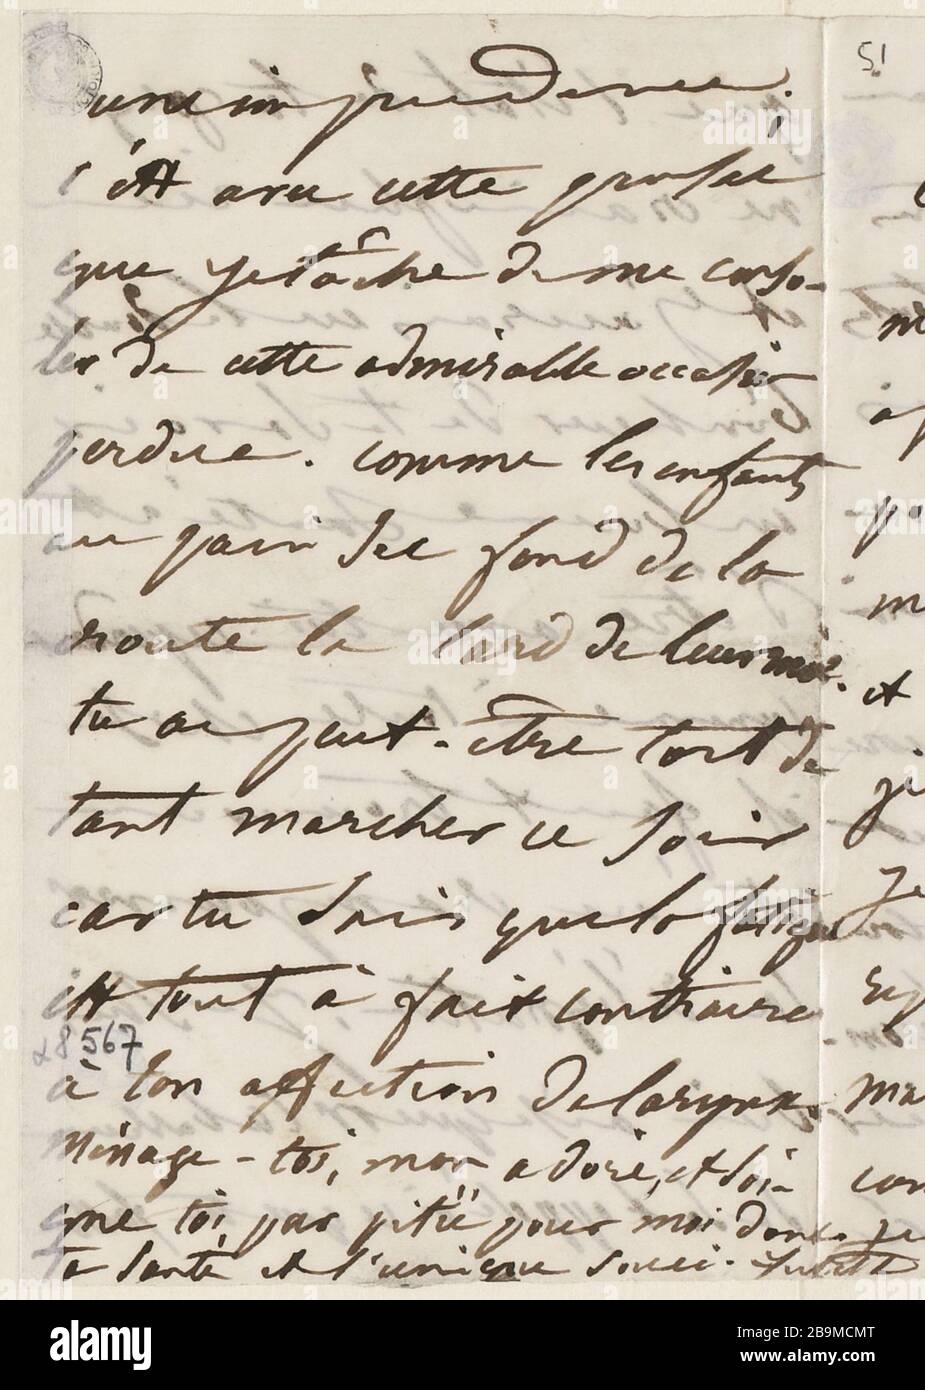 51
une imprudence;
c'est avec cette pensée
que je tâche de me conso-
ler de cette admirable occasion
perdue. comme les enfants
au pain sec fond de la
route la lard de leur
tu as peut-être tort de
tant marcher ce soir
car tu sais que la fatigue
est tout à fait contraire
8567
à ton affection de larynx.
Ménage-toi, mon adoré, et soi-
gne toi par pitié pour moi dont
ta santé est l'unique souci. Juliette
et
je
alamy
Image ID: 2B9MCMT
www.alamy.com